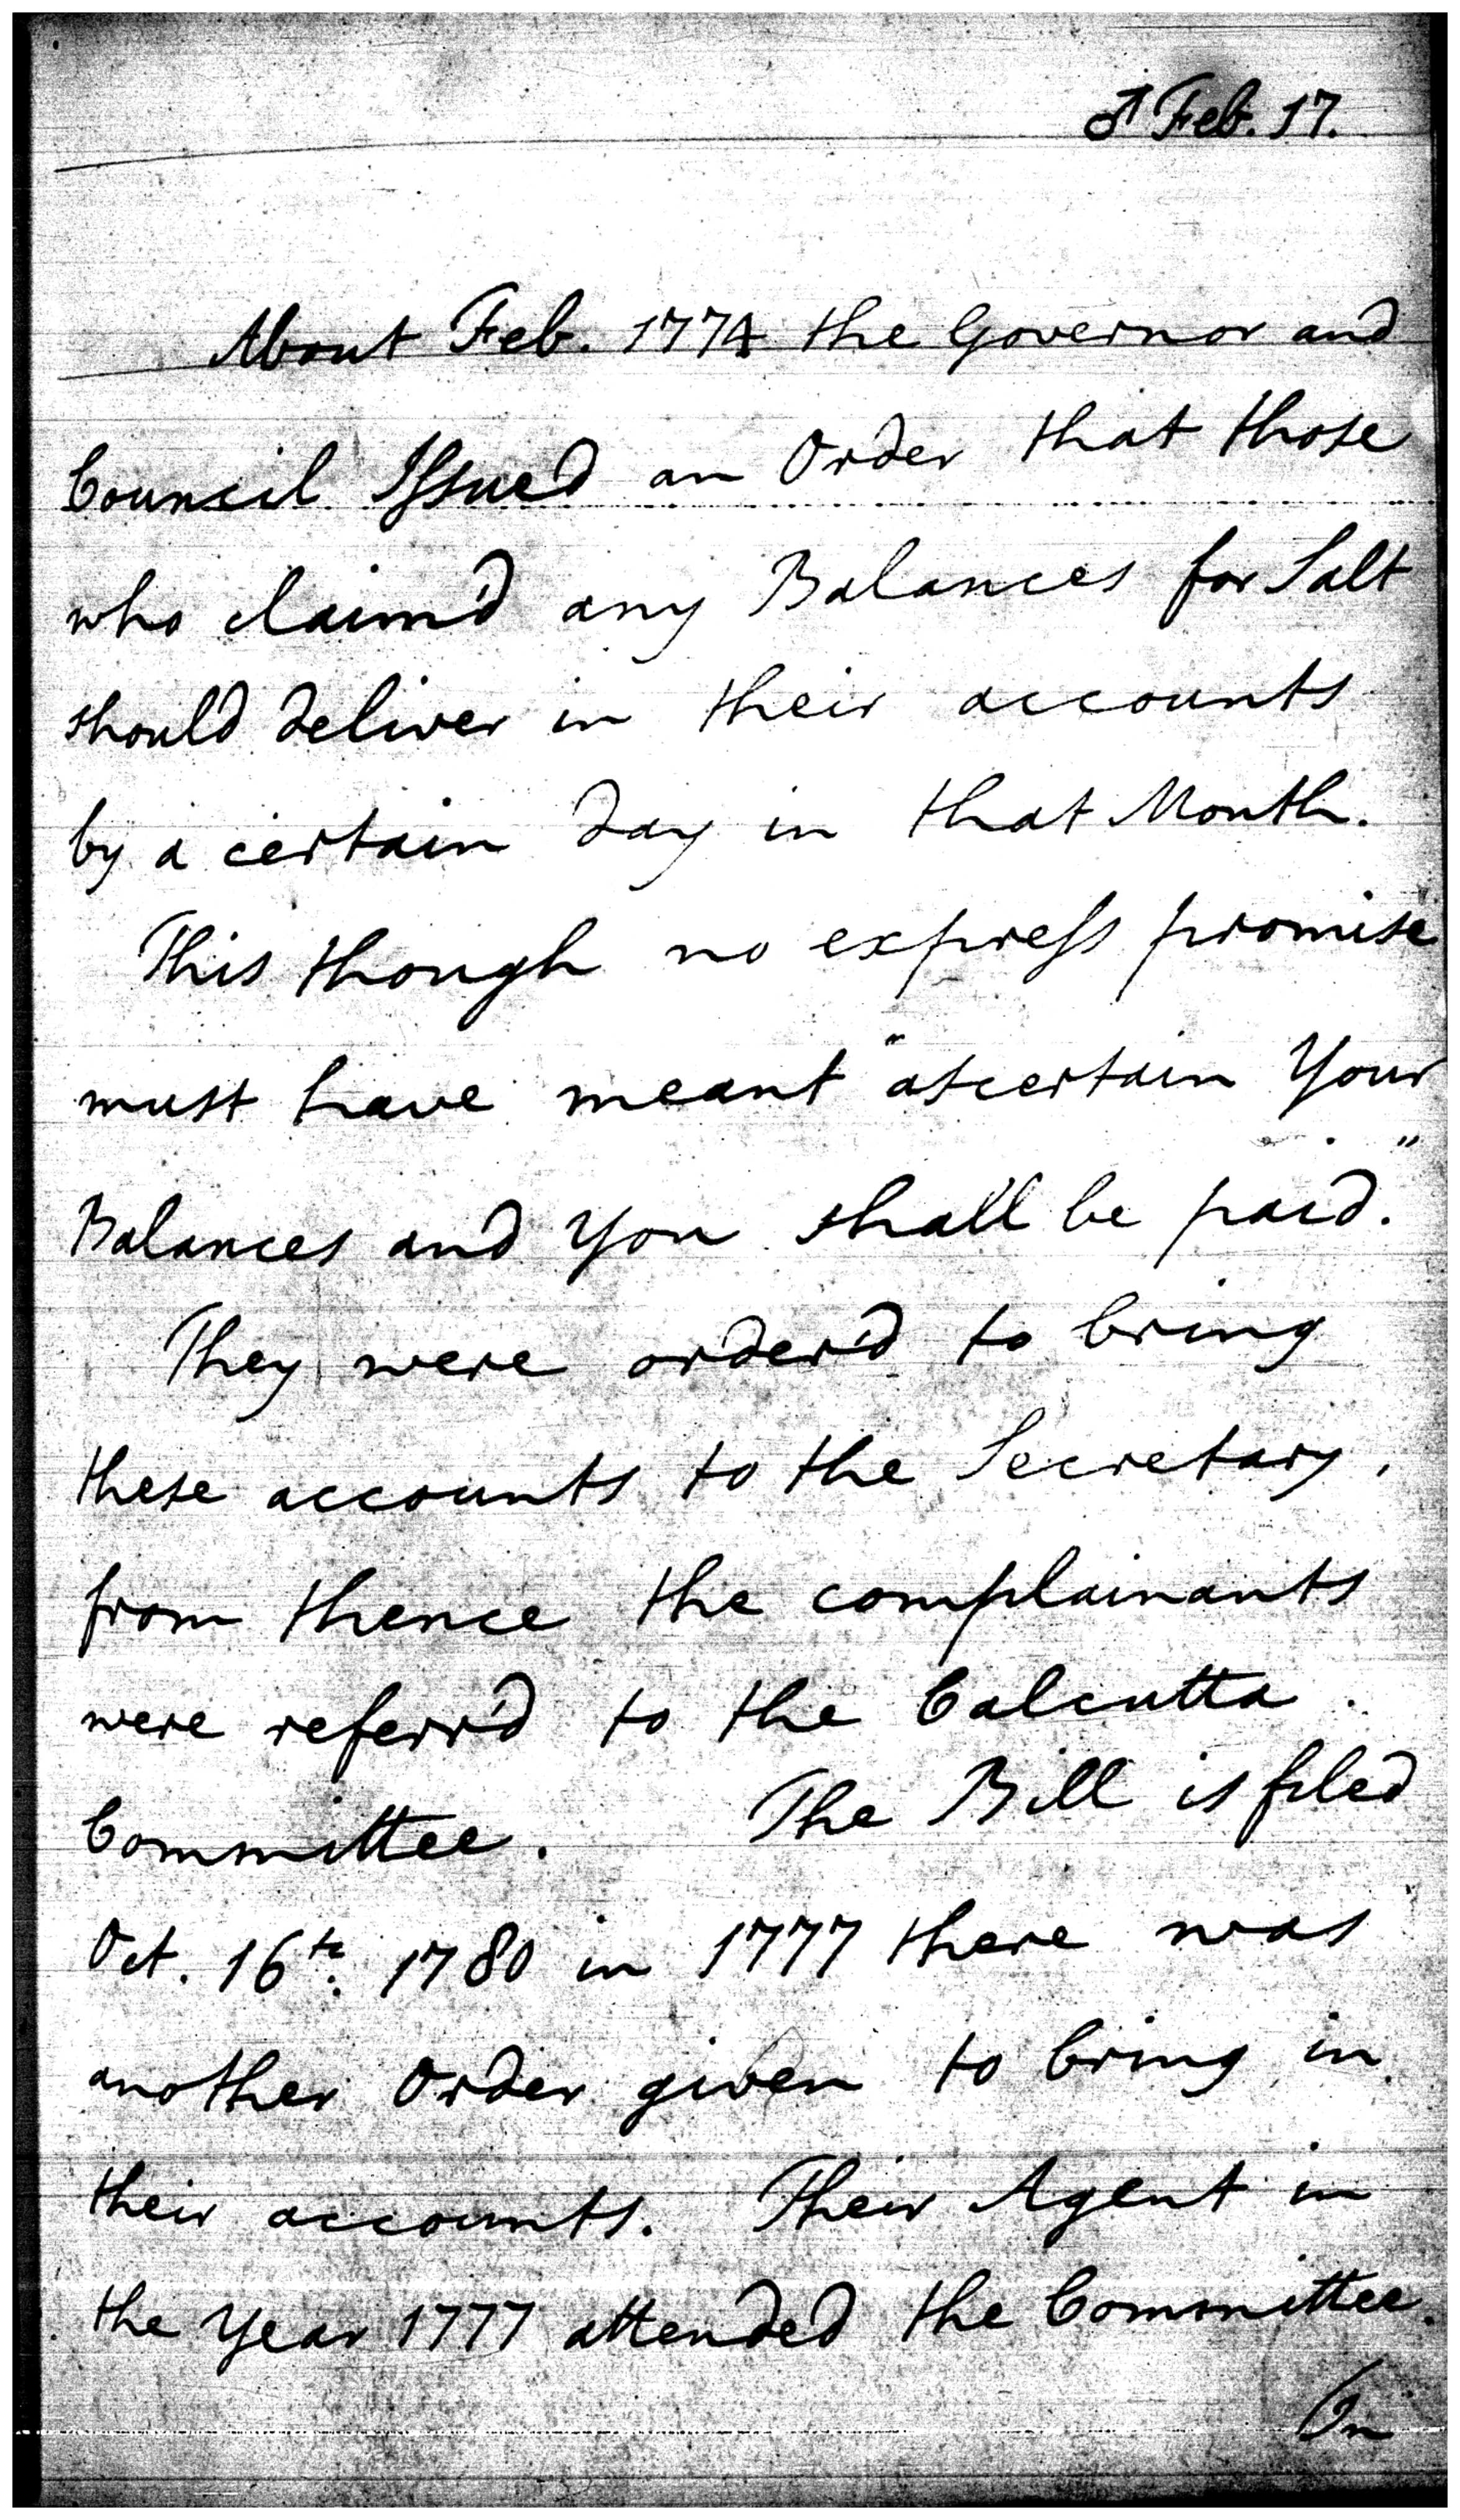 ♂ Feb. 17.
About Feb. 1774 the Governor and
Council Issued an Order that those
who claim'd any Balances for Salt
should deliver in their accounts
by a certain day in that Month.
This though no express promise
must have meant "ascertain Your
Balances and You shall be paid."
They were order'd to bring
these accounts to the Secretary,
from thence the complainants
were referr'd to the Calcutta
Committee. The Bill is filed
Oct. 16th. 1780 in 1777 there was
another Order given to bring in
their accounts. Their Agent in
the Year 1777 attended the Committee.
On